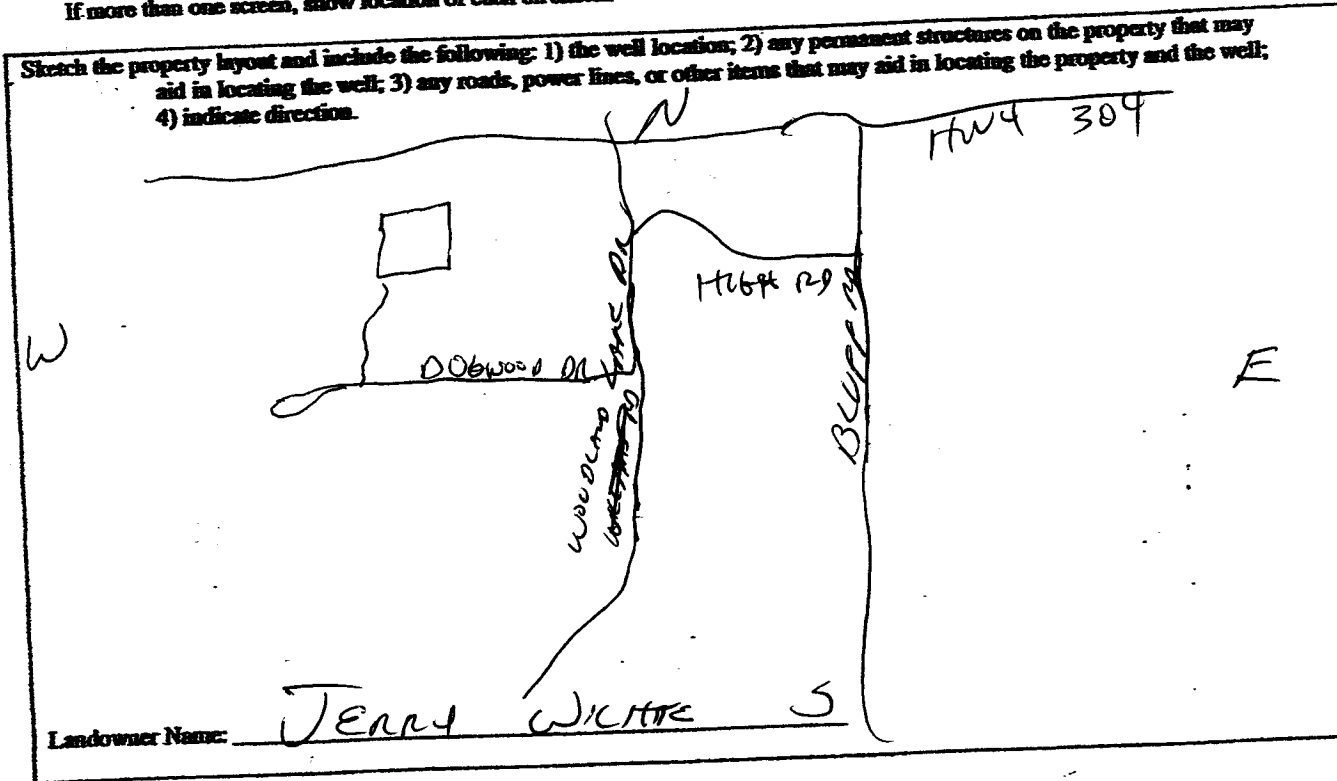 If more than one screen, show location of each
Sketch the property layout and include the following: 1) the well location; 2) any permanent structures on the property that may
aid in locating the well; 3) any roads, power lines, or other items that may aid in locating the property and the well;
4) indicate direction.
N
HWY 304
HUGH RD
W
DOGWOOD DR
WOODLAND LAKE DR
RD
BLUFF RD
E
S
Landowner Name: JERRY